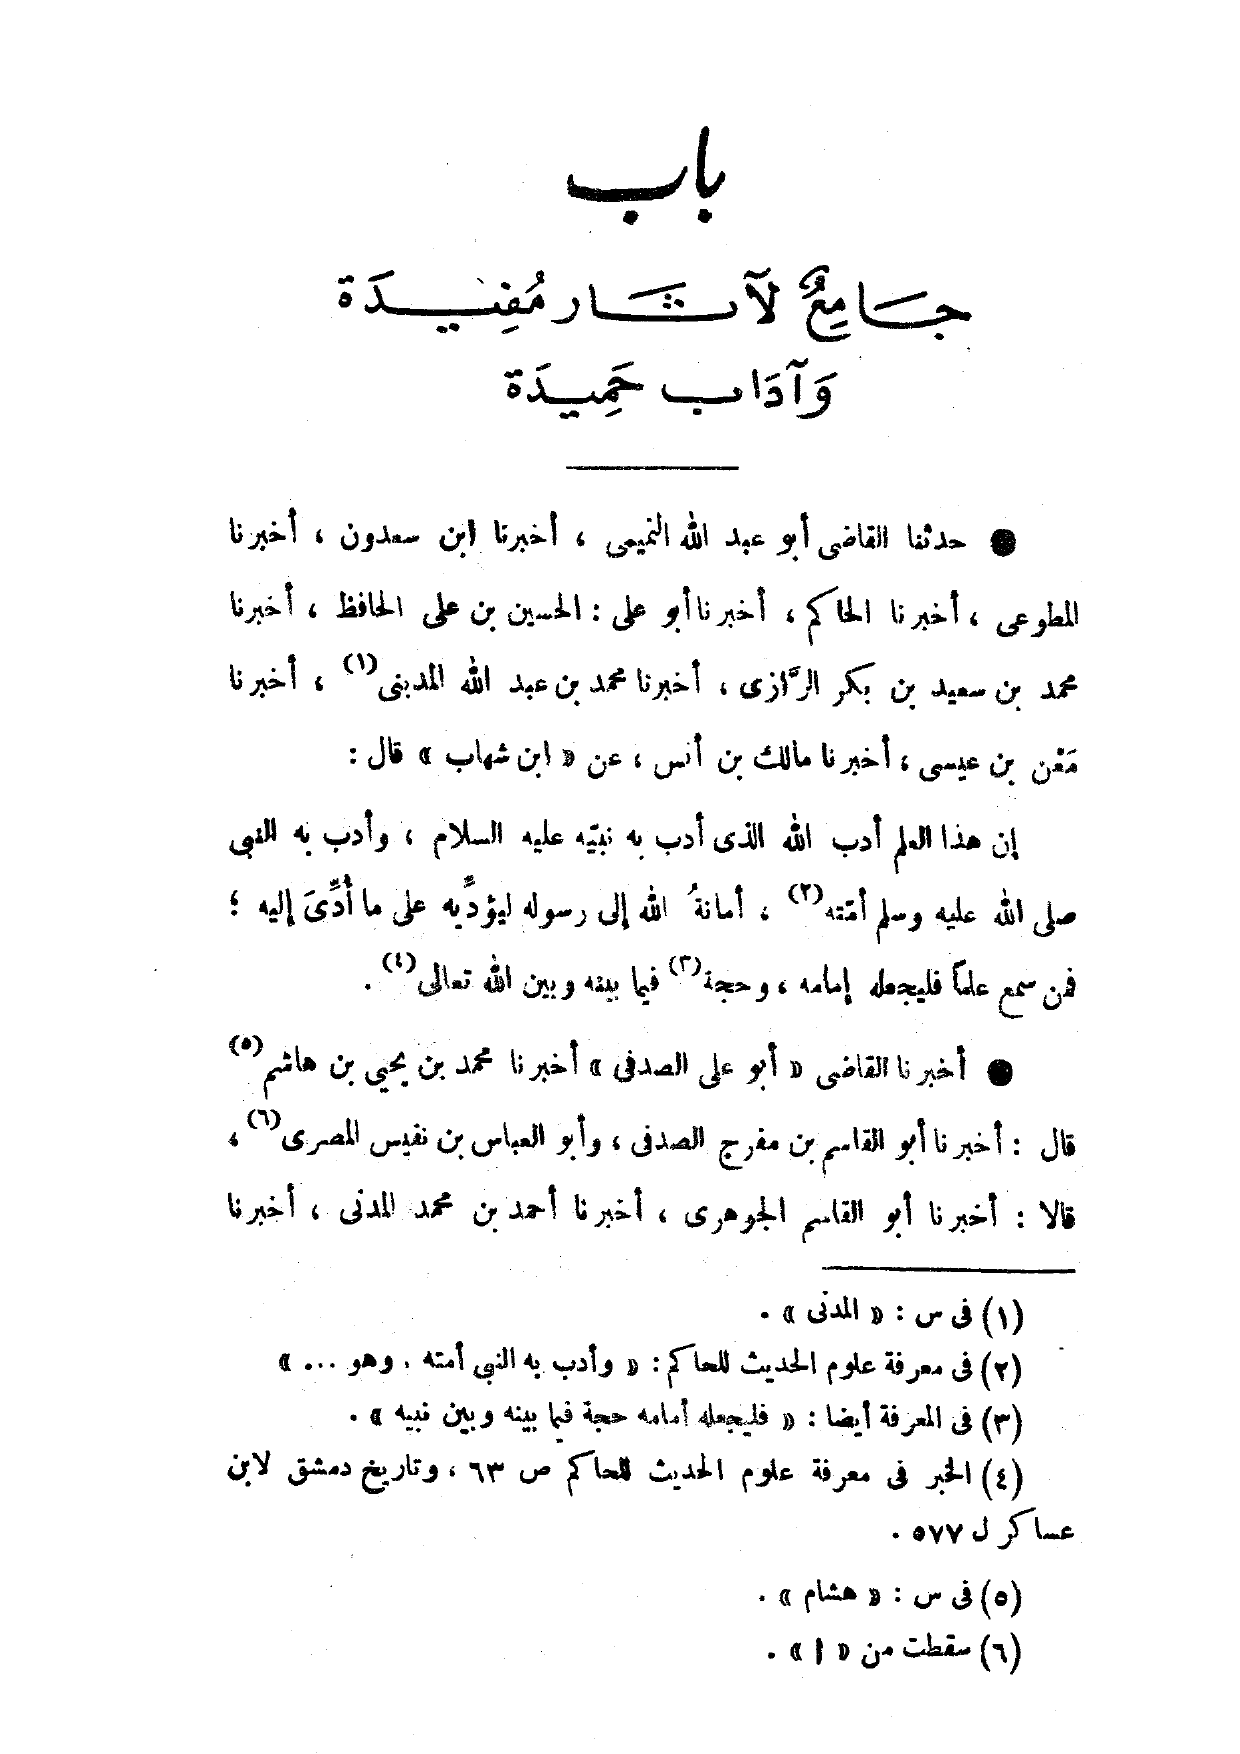 باب
جَامِعٌ لآثَار مُفِيدَة
وَآدَاب حَمِيدَة
● حدثنا القاضى أبو عبد الله التميمى ، أخبرنا ابن سعدون ، أخبرنا
المطوعى ، أخبرنا الحاكم ، أخبرنا أبو على : الحسين بن على الحافظ ، أخبرنا
محمد بن سعيد بن بكر الرَّازى ، أخبرنا محمد بن عبد الله المدينى(١) ، أخبرنا
مَعْن بن عيسى ، أخبرنا مالك بن أنس ، عن « ابن شهاب » قال :
إن هذا العلم أدب الله الذى أدب به نبيّه عليه السلام ، وأدب به النبى
صلى الله عليه وسلم أمّته(٢) ، أمانةُ الله إلى رسوله ليؤدِّيه على ما أُدِّىَ إليه ؛
فمن سمع علماً فليجعله إمامه ، وحجة(٣) فيما بينه وبين الله تعالى(٤) .
● أخبرنا القاضى « أبو على الصدفى » أخبرنا محمد بن يحيى بن هاشم(٥)
قال : أخبرنا أبو القاسم بن مفرج الصدفى ، وأبو العباس بن نفيس المصرى(٦) ،
قالا : أخبرنا أبو القاسم الجوهرى ، أخبرنا أحمد بن محمد المدنى ، أخبرنا
(١) فى س : « المدنى » .
(٢) فى معرفة علوم الحديث للحاكم : « وأدب به النبى أمته . وهو ... »
(٣) فى المعرفة أيضا : « فليجعله أمامه حجة فيما بينه وبين نبيه » .
(٤) الخبر فى معرفة علوم الحديث للحاكم ص ٦٣ ، وتاريخ دمشق لابن
عساكر ل ٥٧٧ .
(٥) فى س : « هشام » .
(٦) سقطت من « ا » .